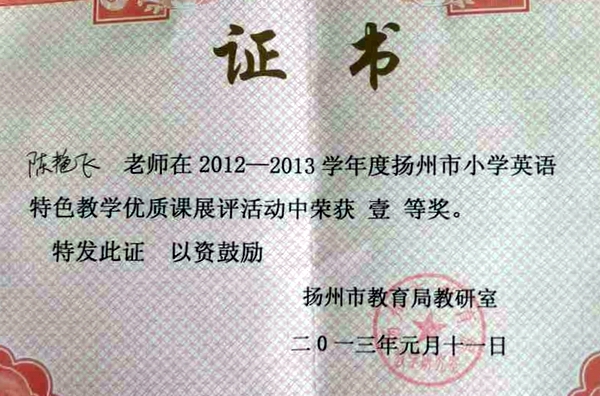 证书
陈艳飞 老师在2012—2013学年度扬州市小学英语
特色教学优质课展评活动中荣获 壹 等奖。
特发此证 以资鼓励
扬州市教育局教研室
二0一三年元月十一日